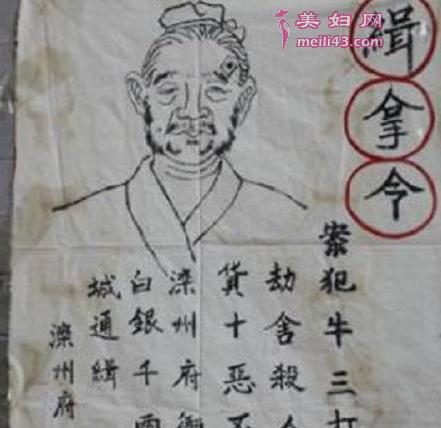 美妇网
meili43.com
緝拿令
案犯牛三打
劫舍殺人
貨十惡不
滦州府衙
白銀千兩
城通緝
滦州府